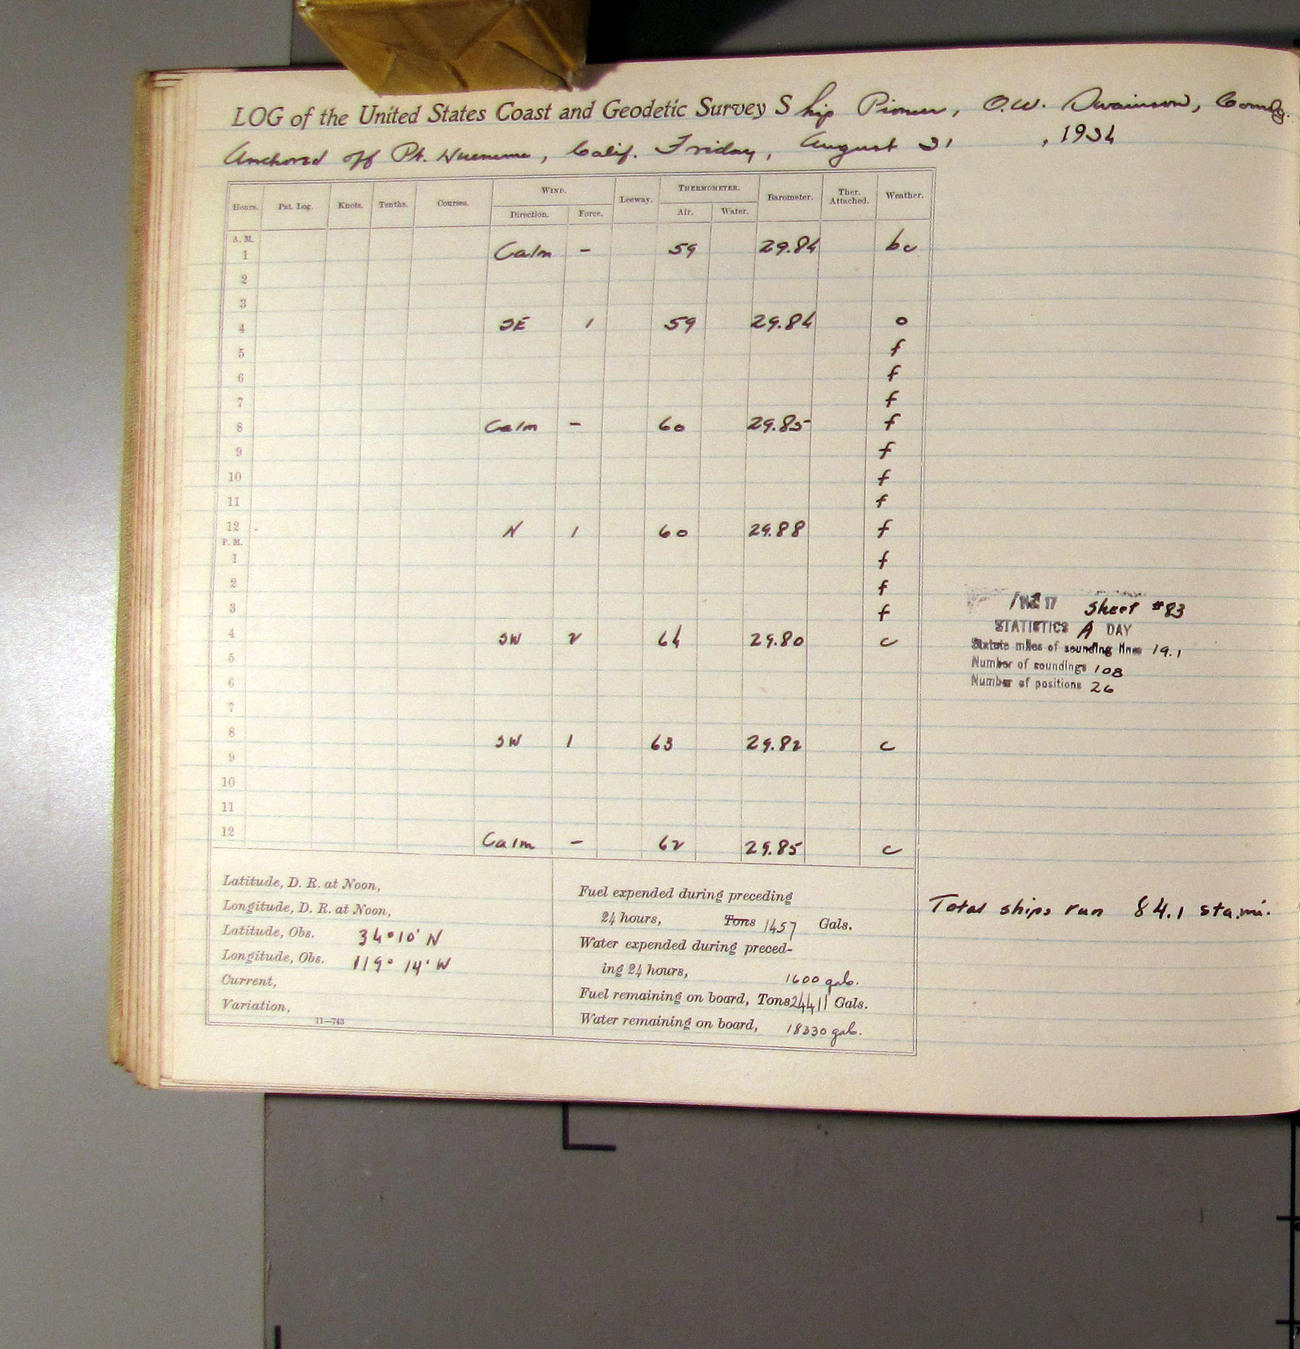 LOG of the United States Coast and Geodetic Survey Ship Pioneer, O.W. Swainson, Comdg.
Anchored off Pt. Hueneme, Calif. Friday, August 31, 1934
Hours. Pat. Log. Knots. Tenths. Courses. WIND. Direction. Force. Leeway. THERMOMETER. Air. Water. Barometer. Ther. Attached. Weather.
A. M.
1 Calm – 59 29.84 bc
2
3
4 SE 1 59 29.84 o
5 f
6 f
7 f
8 Calm – 60 29.85 f
9 f
10 f
11 f
12 N 1 60 29.88 f
P. M.
1 f
2 f
3 f
4 SW 2 64 29.80 c
5
6
7
8 SW 1 63 29.82 c
9
10
11
12 Calm – 62 29.85 c
Sheet #83
STATISTICS A DAY
Statute miles of sounding lines 19.1
Number of soundings 108
Number of positions 26
Latitude, D. R. at Noon,
Longitude, D. R. at Noon,
Latitude, Obs. 34° 10' N
Longitude, Obs. 119° 14' W
Current,
Variation,
11—743
Fuel expended during preceding
24 hours, Tons 1457 Gals.
Water expended during preced-
ing 24 hours, 1600 gals.
Fuel remaining on board, Tons 24411 Gals.
Water remaining on board, 18330 gals.
Total ships run 84.1 sta.mi.